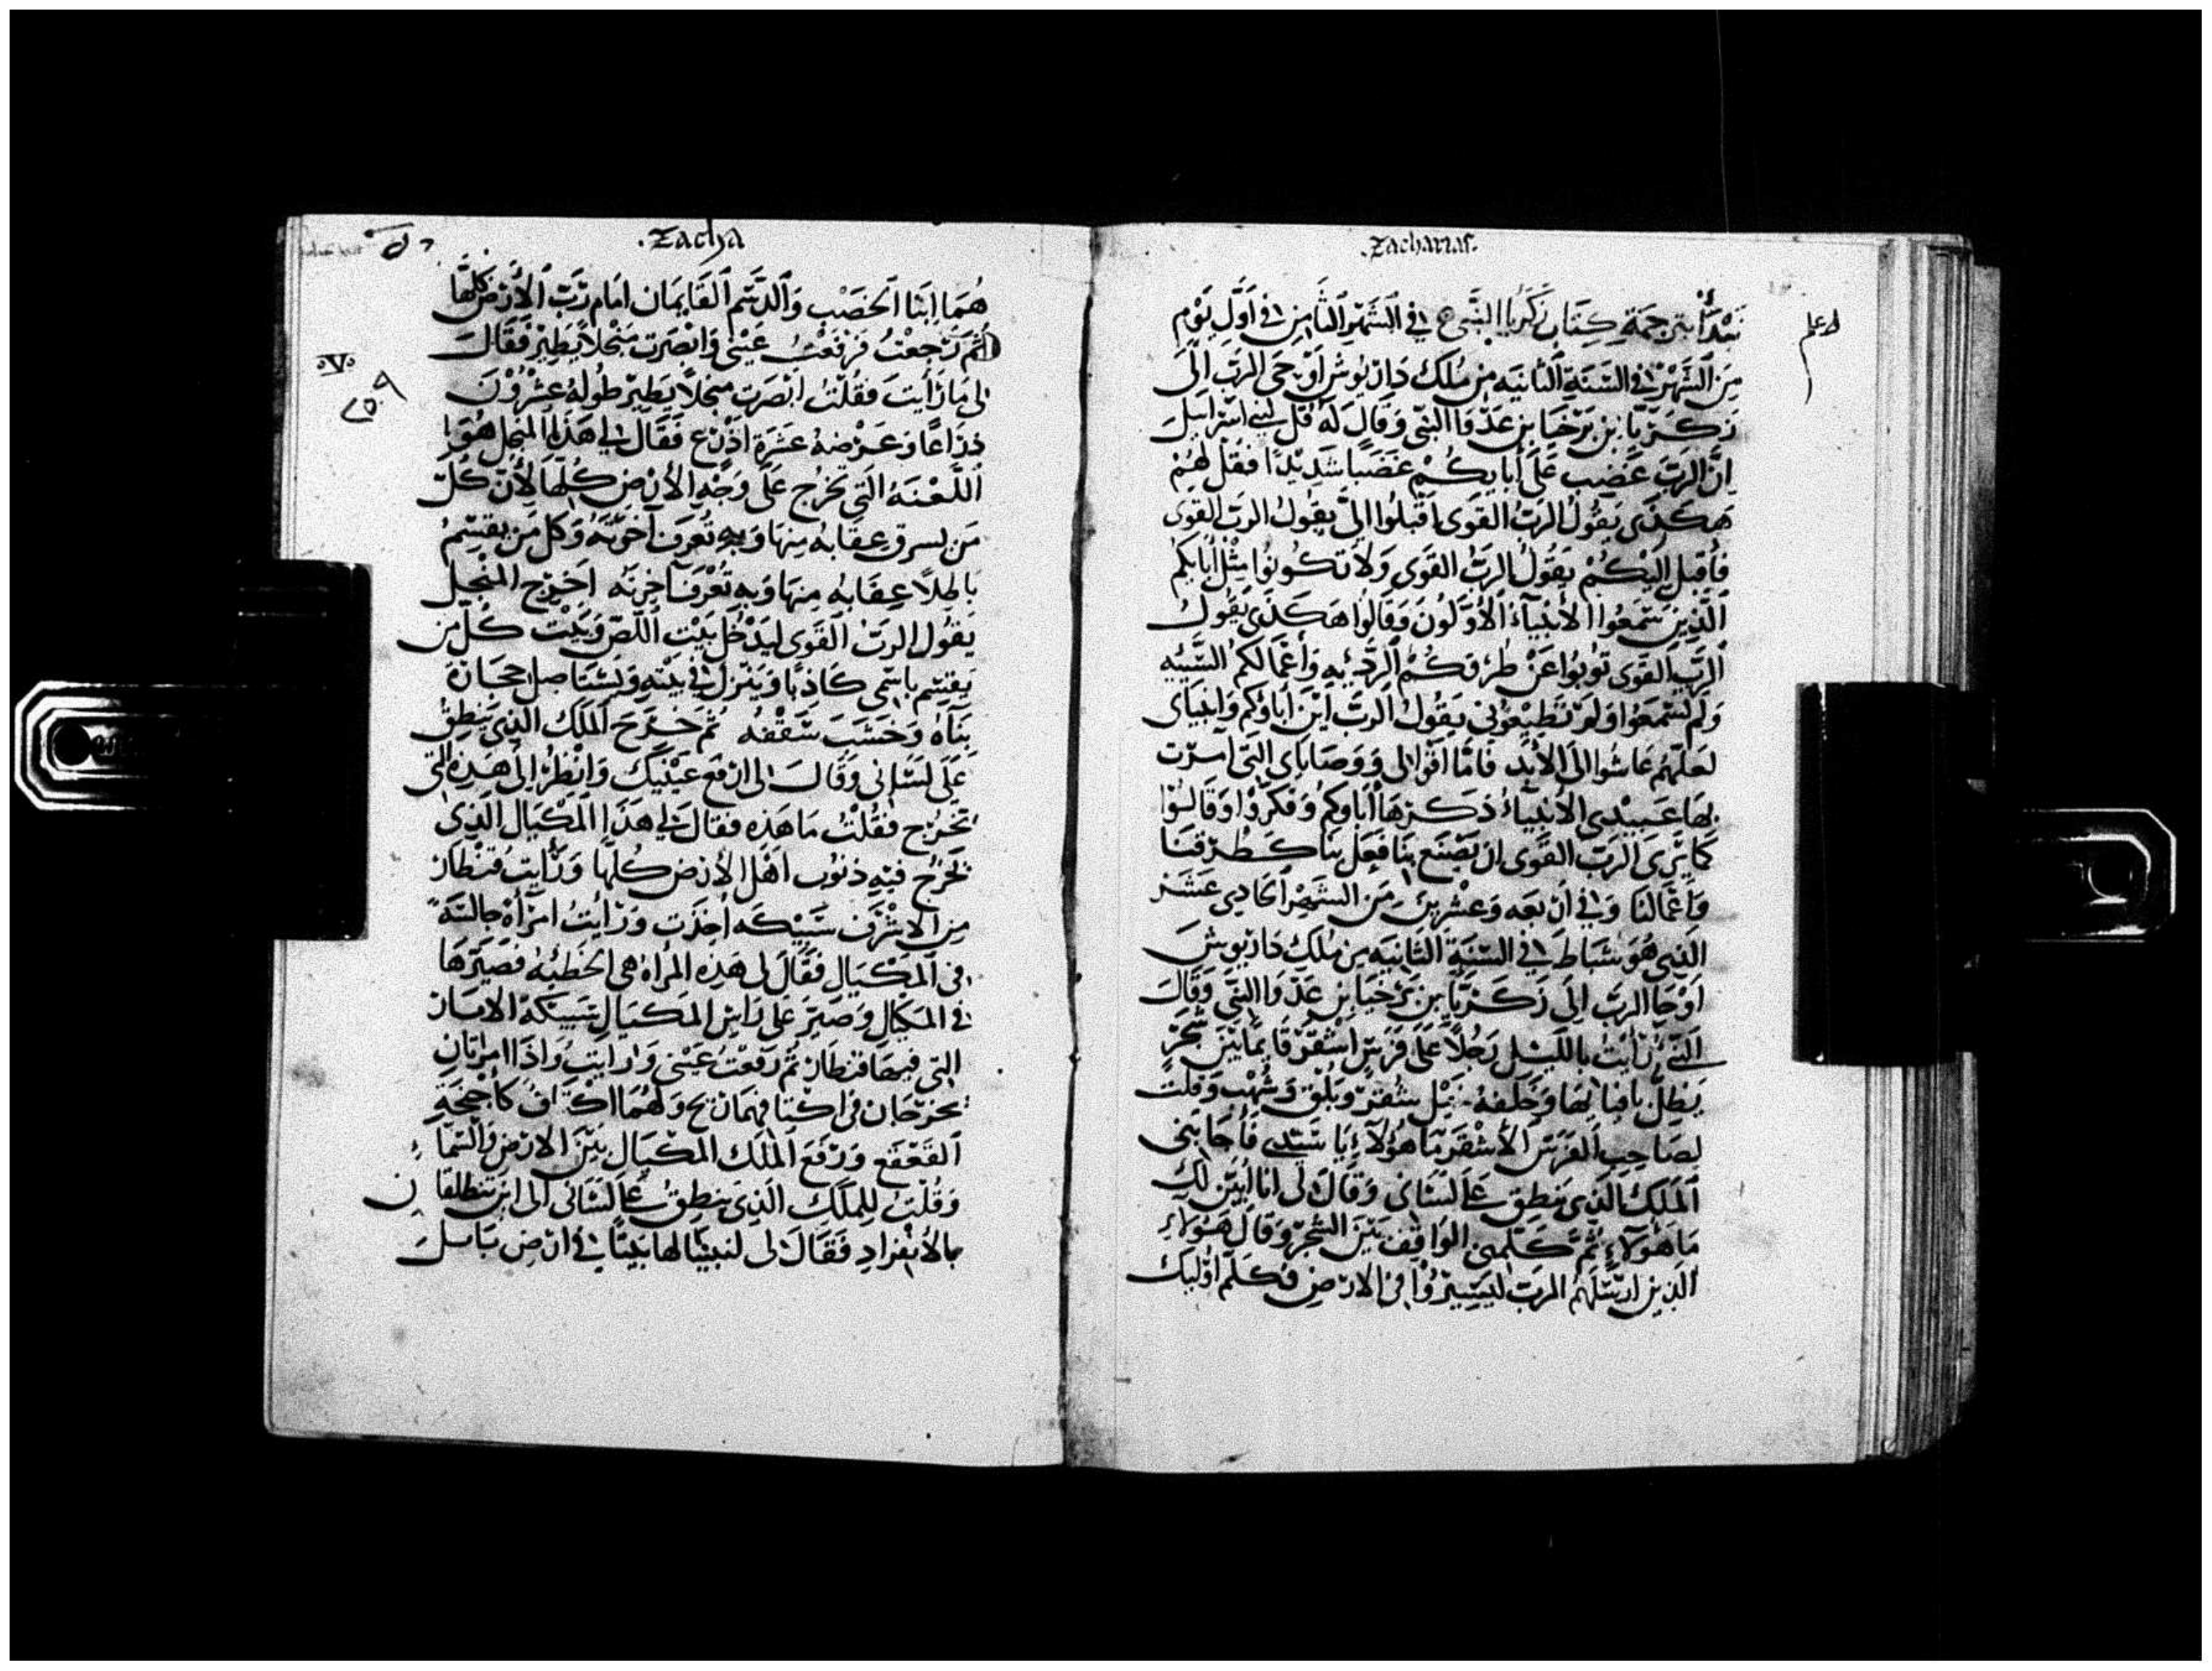 .Zacharias.
نَبْدَأُ بترجمة كِتَاب زَكَريا النَّبي ع في الشَهْرِ الثَّامِن في اَوَّلِ يَوْمِ
مِنَ الشَّهْرِ في السَنَةِ الثانيه من مُلك دَاريُوش اَوْحَى الرَب اِلَى
زكَريَّا بن بَرَخيَا بن عَدّوَا النَبّى وَقَال لَهُ قُل لبني اسرَاييل
اِنَّ الرَبَّ غَضِبَ عَلَى أبايكُمْ غَضَبًا شَدِيْدًا فقُل لهُمْ
هَكذى يَقُولُ الرَبُّ القَوَى اَقْبلُوا اِلىَّ يقُولُ الربّ القوى
فأقبل اِلَيْكُمْ يَقُولُ الرَبُّ القَوَى وَلا تكونُوا مِثْل أبَايكم
الَّذِينَ سَمَعُوا الأنبيَاء الأَوَّلُونَ وَقَالُوا هَكَذى يَقُولُ
الرَّب القَوَى تُوبُوا عَن طُرُقكُمْ الرَّديه وَأَعْمَالكم السَّيئه
وَلَم تسْمَعُوا وَلَمْ تُطِيْعُونى يَقُولُ الرَّب اَيْنَ اَباؤكم وَانبيَاى
لعَلّهُم عَاشُوا الى الأبَد فَامَّا اَقوالى وَوَصَايَاى التى اَمرت
بِهَا عَبيدى الأنبيَاءُ ذكرَهَا اَباوكم وَفكرُوا وَقالوا
كَمَا يَرَى الرَبّ القَوَى ان يَصْنَع بِنَا فَعَل بنا كَطُرقنَا
وَأَعْمَالنَا وَفي أربَعه وَعشْرين مِنَ الشَّهْرِ الحَادِي عَشَر
الذى هُوَ شبَاط في السَّنَةِ الثَّانيَه من مُلكِ دَاريوش
اَوْحَا الرَبّ الى زكَريّا بن بَرَخيَا بن عَدّوَا النبّى وَقَالَ
النَبى رَأيْتُ بِاللَّيْل رَجُلاً عَلَى فَرَسٍ اَشْقَرَ قَايمًا بَيْنَ شَجَرٍ
يَظِلُّ وَخَلفهُ خيْل شقر وَبُلْق وَشُهْب وَقلتُ
لِصَاحِبِ الفَرَسِ الأشْقَر مَا هَؤلاَءِ يَا سَيّدِي فَأجَابَنى
المَلَك الذى يَنطِق عَلَى لسَانى وَقَالَ لى اَنا اُبَيّن لك
مَا هَؤلاَءِ ثُمَّ كَلَّمنى الوَاقِف بَيْنَ الشَّجَر وَقَال هَؤلاَءِ
الذِين اَرْسَلَهُم الرَبّ ليَسِيرُوا في الارْضِ فَكلَّم اُوليك
.Zachya
هُمَا ابنا الخصْب وَالدَّسَم القَايمَان امَام رَبّ الأَرْض كُلّهَا
ثُمَ رَجعْتُ فَرفَعْتُ عَيْنى وَابْصَرت مَنْجلاً يَطِيرُ فَقَالَ
لى مَا رَأيتَ فقُلتُ ابْصَرت منجلاً يَطِير طولهُ عشْرُوْنَ
ذرَاعًا وَعَرْضهُ عَشَرَة اَذرُع فَقَال لي هَذا المَنجل هُوَ
اللَّعْنَهُ التي تخْرُج عَلَى وَجْهِ الأرضِ كُلّها لأن كُلّ
مَن يسرق عِقَابهُ مِنهَا وَبِهِ تُعْرفُ آخرَتهُ وَكُل مَن يقسِمُ
بَاطِلاً عِقَابهُ مِنهَا وَبِهِ تُعْرفُ آخِرتهُ اَخرِج المنْجل
يَقُولُ الرَبُّ القَوَى ليَدْخُل بَيْتَ اللصّ وَبَيْت كُلّ من
يقسِم باسْمى كَاذِبًا وَيَنزلُ في بيتِهِ وَيَسْتَاصل حجَارة
بنَاهُ وَخَشَبَ سَقْفهُ ثُمَّ خَرَجَ المَلَكُ الذِى يَنْطِقُ
عَلَى لسَانى وَقَالَ لى ارْفع عيْنَيك وَانْظُرُ الى هَذِهِ التى
تَخرُج فقُلْتُ مَا هَذِه فقَال لي هَذَا المكيَال الذى
تخْرُج فيْهِ ذنُوب اهْل الارض كُلهَا وَرَأيتُ قنطَار
مِن الاسْرُف سَبِيكَه اُخِذَت وَرَأيتُ امرَأه جَالسَةً
في المكْيَال فَقَالَ لى هَذِهِ المَرأه هى الخَطيّهُ فَصَيّرَهَا
في المكيَالِ وَصَيّر عَلَى رَاسِ المَكيَال سَبيكَة الابَار
التى فيهَا قنطَار ثُمَّ رَفَعْتُ عَيْنى وَرَأيتُ وَاذا امرَاتانِ
يخرُجَان في اكنافهمَا ريح وَلهُمَا اكْنَافُ كأجْنحَةِ
القعْقع وَرَفعَ المَلك المكيَال بَيْنَ الارْضِ وَالسَمَاءِ
وَقُلْتُ لِلمَلَكِ الَذِى يَنطقُ عَلَى لسَانى الى اين تنطلقَان
بالأنفِرَاد فَقَالَ لى لنبنيَا لهَا بَيْتًا في ارْض بَابلَ
.V.